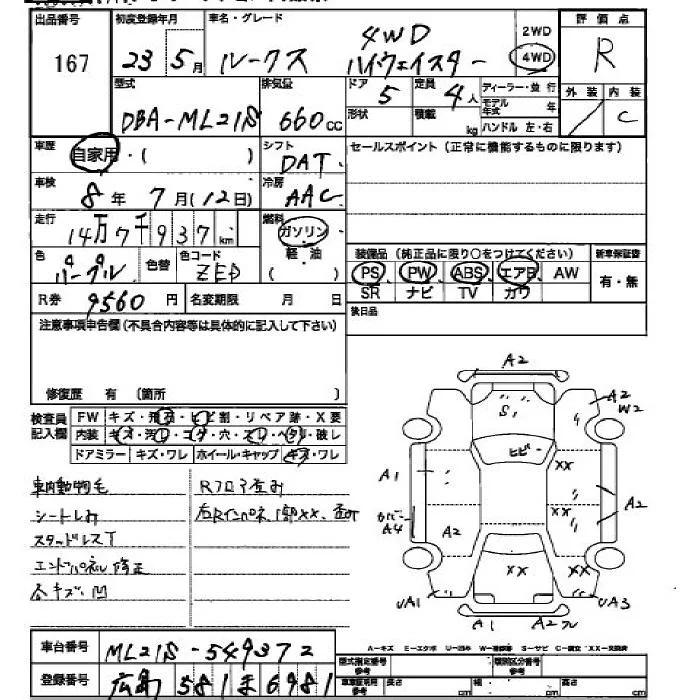 出品番号 初度登録年月 車名・グレード 評価点
167 23 5月 ルークス 4WD ハイウェイスター 2WD 4WD R
型式 排気量 ドア 定員 ディーラー・並行 外装 内装
DBA-ML21S 660cc 5 4人 モデル年式 年 / C
形状 積載 kg ハンドル 左・右
車歴 自家用・( ) シフト DAT セールスポイント(正常に機能するものに限ります)
車検 8年 7月(12日) 冷房 AAC
走行 14万7千937km 燃料 ガソリン 軽油 ( )
装備品(純正品に限り○をつけてください) 新車保証書
色 パープル 色替 色コード ZED PS PW ABS エアB AW 有・無
R券 9560円 名変期限 月 日 SR ナビ TV カワ
注意事項申告欄(不具合内容等は具体的に記入して下さい) 後日品
修復歴 有 (箇所 )
検査員記入欄 FW キズ・飛石・ヒビ割・リペア跡・X要
内装 キズ・汚レ・コゲ・穴・スレ・ヘタリ・破レ
ドアミラー キズ・ワレ ホイール・キャップ キズ・ワレ
車内動物毛 Rフロア歪み
シートしみ
スタッドレスT
エンドパネル修正
各キズ、凹
A2
S1 A2 W2
ヒビ XX
A1 A2
カバー A4 A2 XX
XX XX
UA1 UA3
A1 A2
車台番号 ML21S-549372
登録番号 広島 581 ま 6981
A=キズ E=エクボ
型式指定番号 参考 類別区分番号 参考
車庫証明用 参考 長さ cm 幅 cm 高さ cm